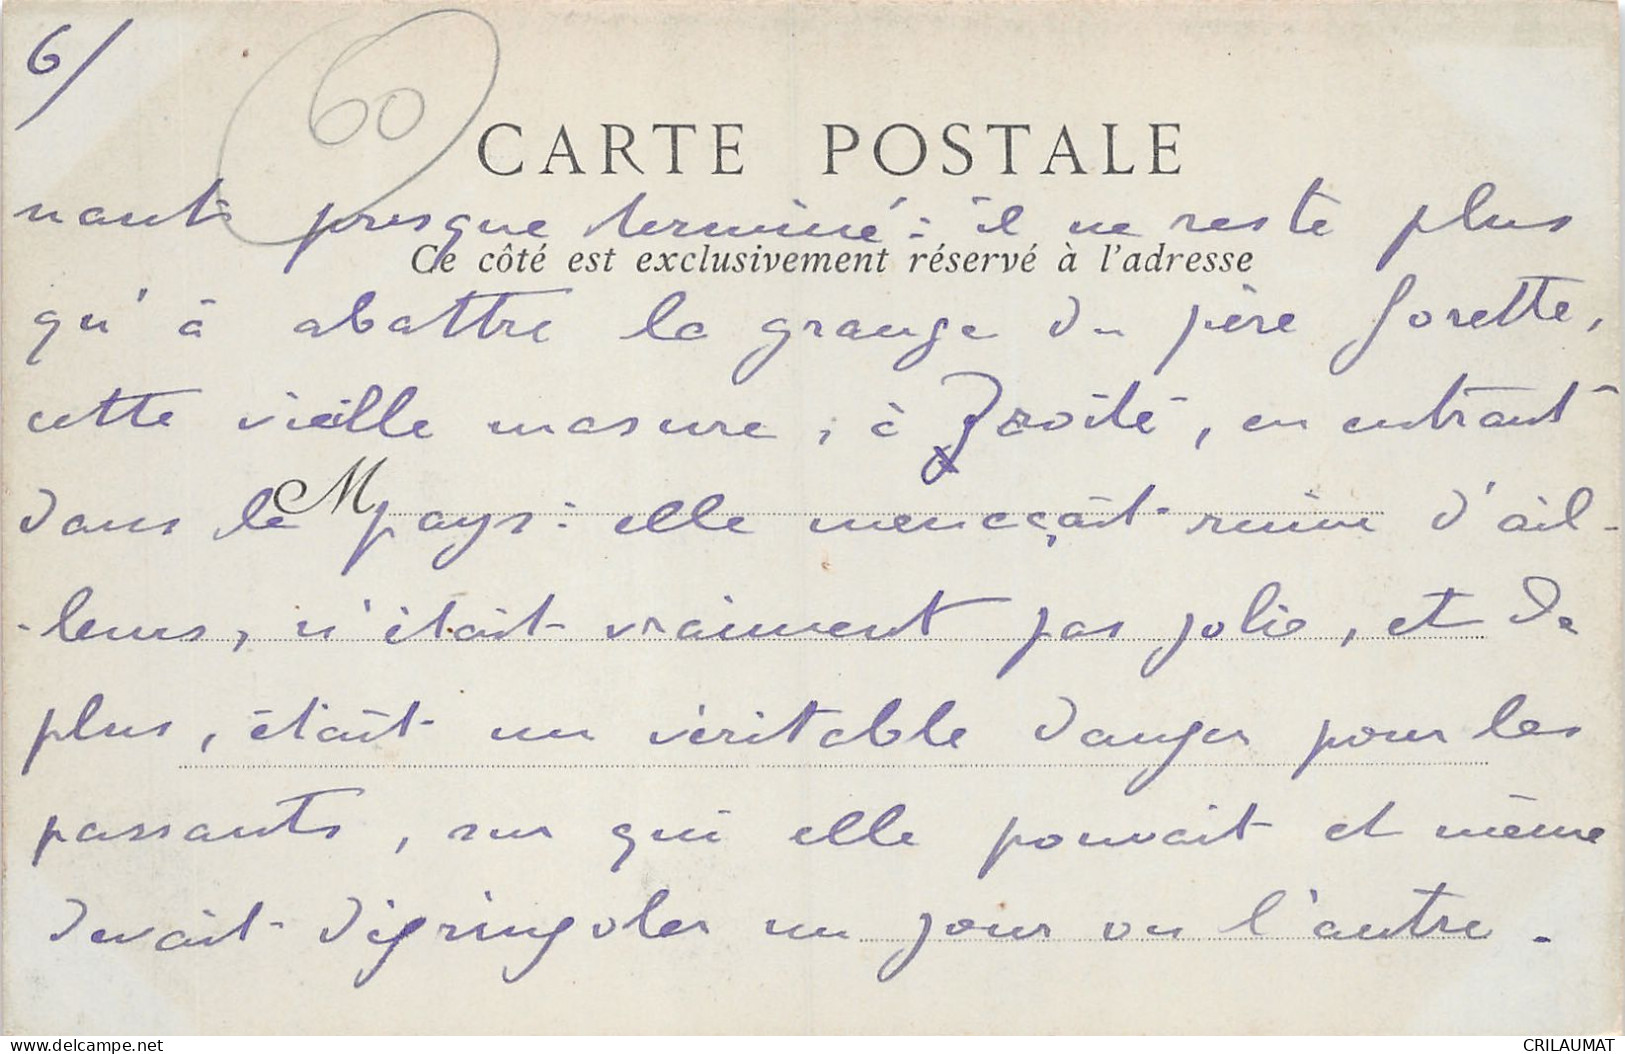 6/
60
CARTE POSTALE
nant presque terminé : il ne reste plus
Ce côté est exclusivement réservé à l'adresse
qu'à abattre la grange du père Gorette,
cette vieille masure, à droite, en entrant
M
dans le pays : elle menaçait ruine d'ail-
-leurs, n'était vraiment pas jolie, et de
plus, était un véritable danger pour les
passants, sur qui elle pouvait et même
devait dégringoler un jour ou l'autre.
delcampe.net
CRILAUMAT